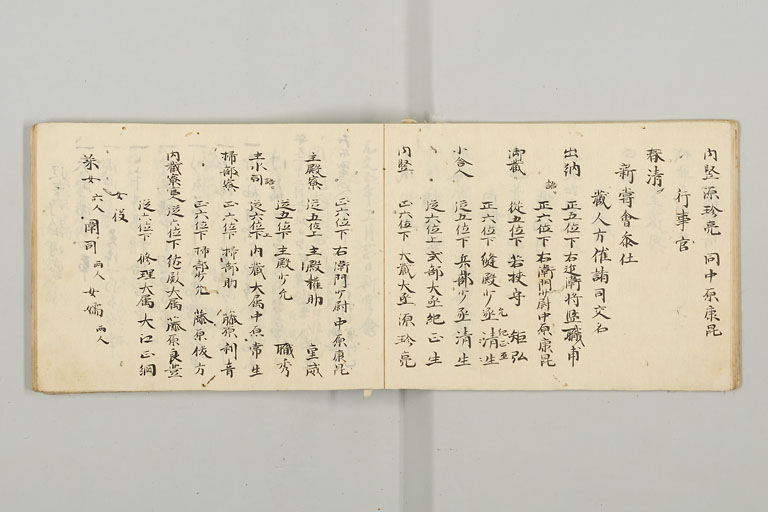 内竪源珍亮 同中原康昆
行事官
春清
新嘗會参仕
蔵人方催諸司交名
出納 正五位下右近衛将監職甫
正六位下右衛門少尉中原康昆
御蔵 従五位下若狭守 矩弘
正六位下縫殿少丞清生
小舎人 従五位下兵部少丞清生
従六位上式部大丞紀正生
内竪 正六位下大蔵大丞源珍亮
正六位下右衛門少尉中原康昆
主殿寮 従五位上主殿権助
従五位下主殿少允 職秀
主水司 従六位下内蔵大属中原常生
掃部寮 正六位下掃部助 藤原利音
正六位下掃部少允 藤原俊方
内蔵寮官人 従六位下 大属藤原良豊
従六位下修理大属大江正綱
女役
采女六人 闈司両人 女嬬両人